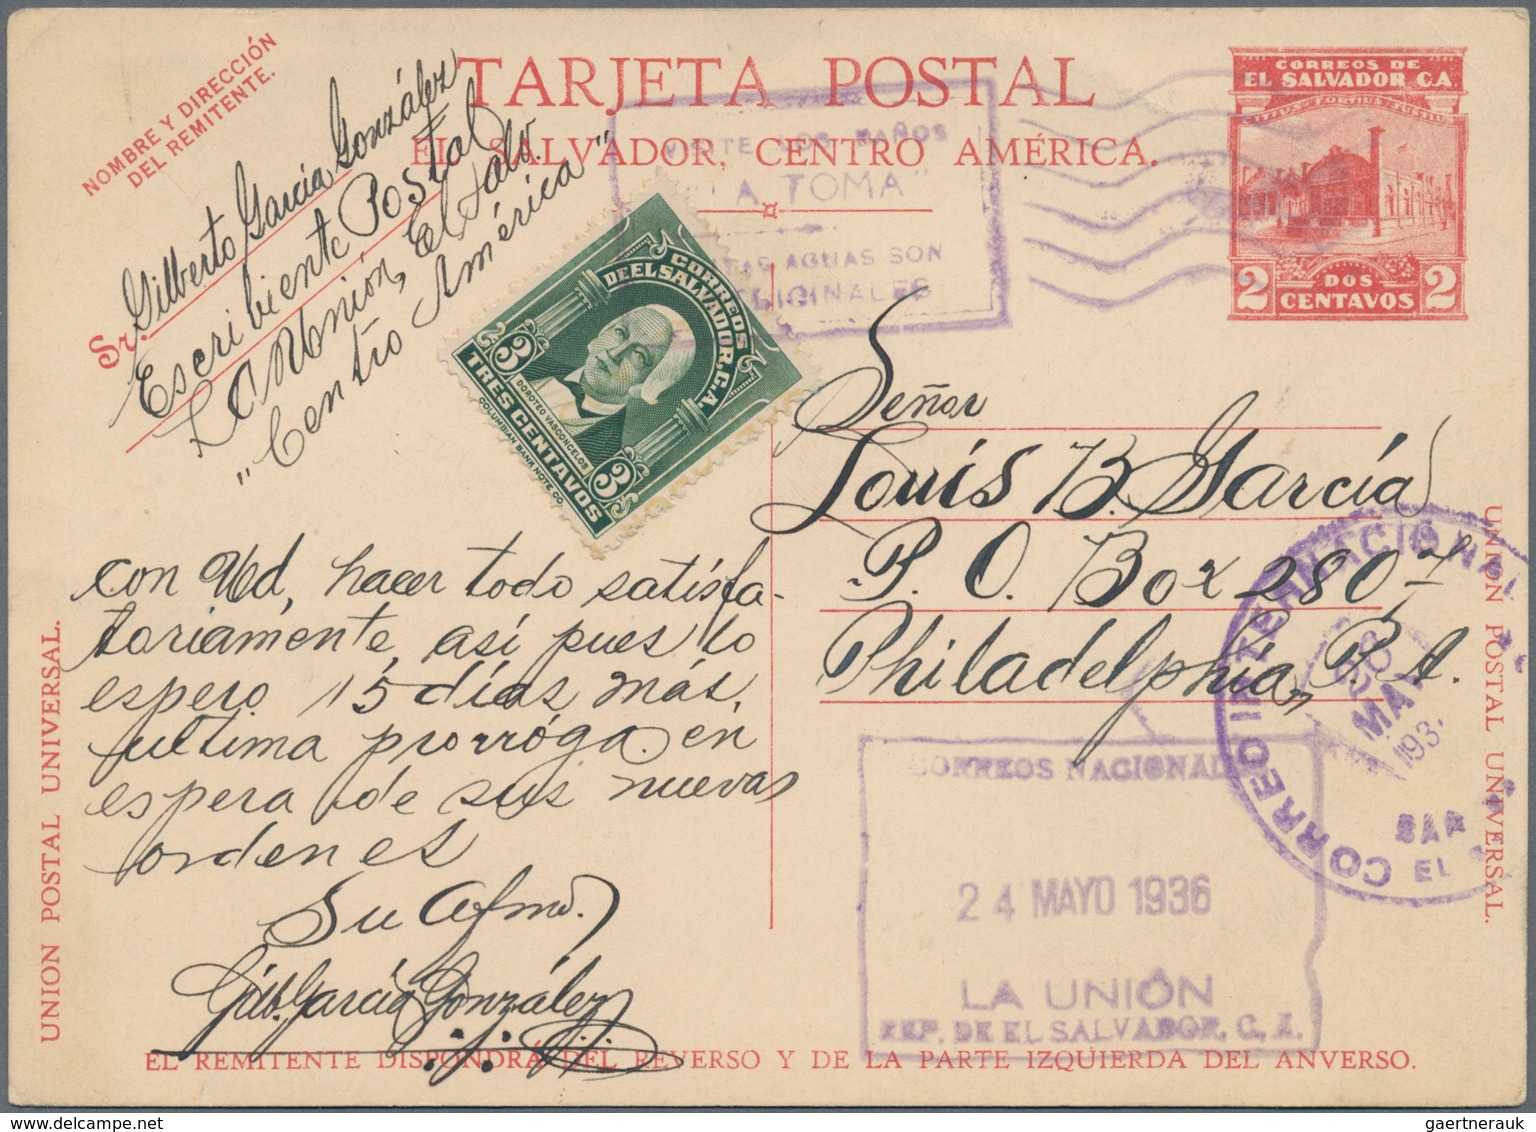 NOMBRE Y DIRECCIÓN
DEL REMITENTE.
Sr. Gilberto García González
Escribiente Postal
La Unión, El Salv.
"Centro América"
TARJETA POSTAL
EL SALVADOR, CENTRO AMÉRICA.
VISITE LOS BAÑOS
LA TOMA"
AGUAS SON
CORREOS DE
EL SALVADOR C.A.
2 DOS 2
CENTAVOS
CORREOS
DE EL SALVADOR, C.A.
3 3
DOROTEO VASCONCELOS
TRES CENTAVOS
COLUMBIAN BANK NOTE CO
Señor
Louis B. García
P. O. Box 2807
Philadelphia, P. A.
con Ud, hacer todo satisfa-
toriamente, así pues lo
espero 15 días más,
ultima prorróga en
espera de sus nuevas
ordenes
Su Afmo.
Gilb. García González
UNION POSTAL UNIVERSAL.
UNION POSTAL UNIVERSAL.
CORREO INTERNACCIONAL
MAY
193
SAN
EL
CORREOS NACIONAL
24 MAYO 1936
LA UNIÓN
REP. DE EL SALVADOR, C. A.
EL REMITENTE DISPONDRÁ DEL REVERSO Y DE LA PARTE IZQUIERDA DEL ANVERSO.
gaertnerauk @ delcampe.net